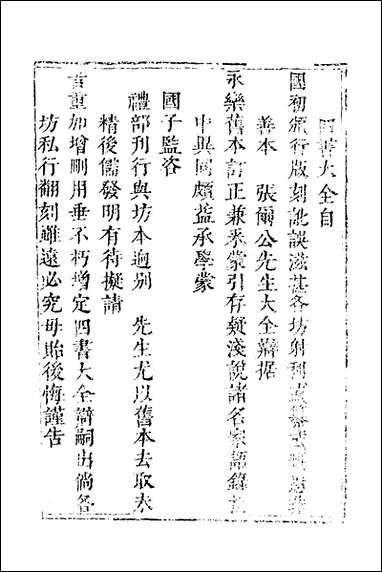 四書大全自
國初頒行版刻訛誤滋甚各坊射利
善本　張爾公先生大全辯据
永樂舊本訂正兼釆蒙引存疑淺說諸名家語錄
中與同頗葢承學蒙
國子監咨
禮部刊行與坊本逈别　先生尤以舊本去取未
精後儒發明有待擬請
重加增刪用垂不朽增定四書大全辯嗣出倘各
坊私行翻刻雖遠必究毋貽後悔謹告